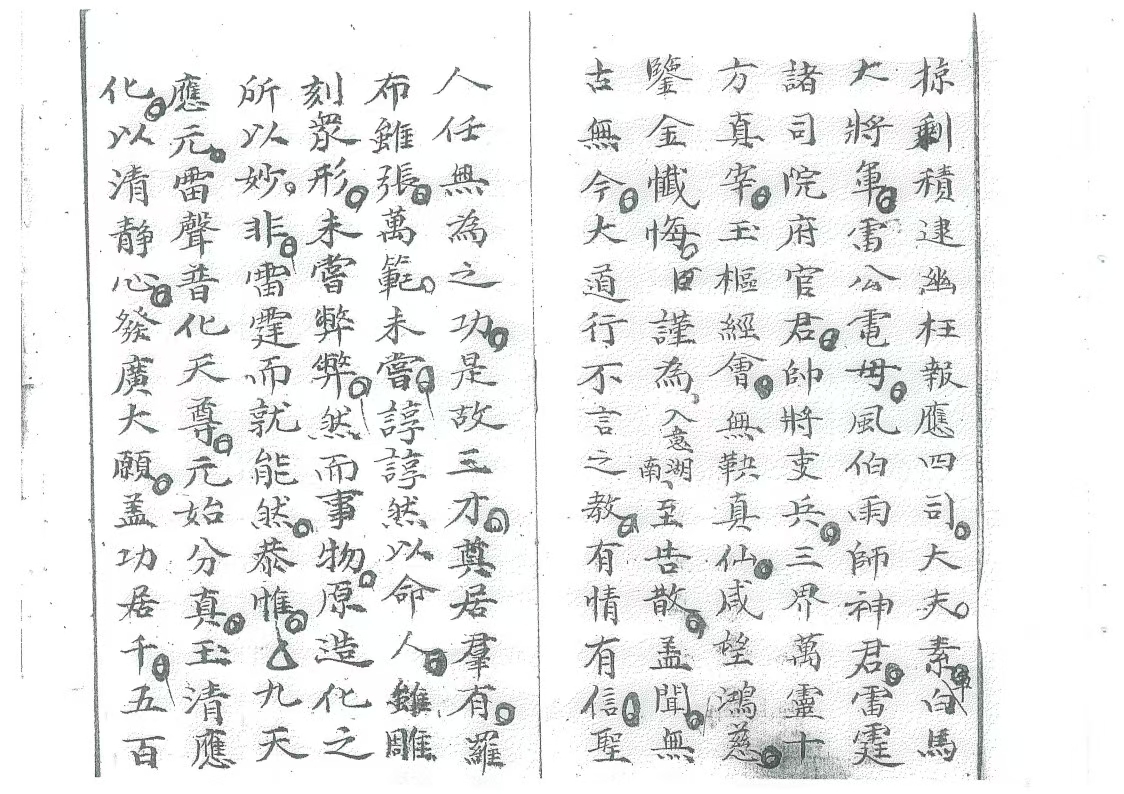 掠剩積逮幽枉報應四司大夫素白馬
大將軍雷公電母風伯雨師神君雷霆
諸司院府官君帥將吏兵三界萬靈十
方真宰玉樞經會無鞅真仙咸望鴻慈
鑒金懺悔田謹為入意湖南至告散盖聞無
古無今大道行不言之教有情有信聖
人任無為之功是故三才奠居羣有羅
布雖張萬範未嘗諄諄然以命人雖雕
刻衆形未嘗弊弊然而事物原造化之
所以妙非雷霆而就能然恭惟九天
應元雷聲普化天尊元始分真玉清應
化以清静心發廣大願盖功居千五百